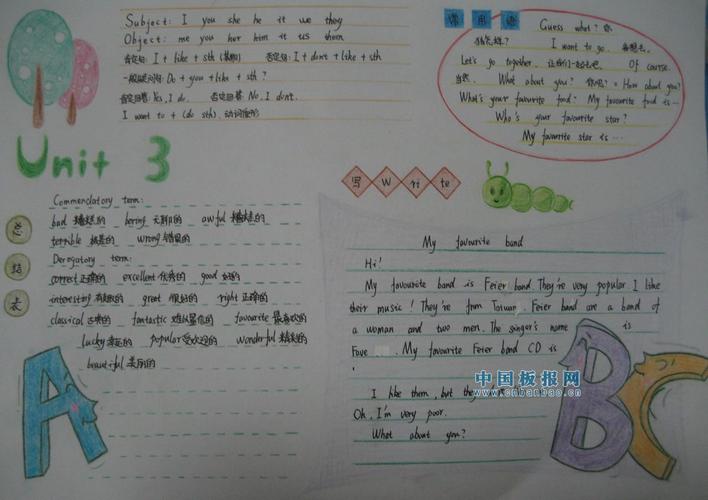 Subject: I you she he it we they
Object: me you her him it us them
肯定句: I + like + sth 否定句: I + don't + like + sth
一般疑问句: Do + you + like + sth ?
肯定回答: Yes, I do. 否定回答: No, I don't.
I want to + (do sth).
Unit 3
总
结
表
Commendatory term:
bad 糟糕的 boring 无聊的 awful 糟糕的
terrible wrong 错误的
Derogatory term:
correct 正确的 excellent 优秀的 good 好的
interesting 有趣的 great 很好的 right 正确的
classical 古典的 fantastic 难以置信的 favourite 最喜欢的
lucky 幸运的 popular 受欢迎的 wonderful 精彩的
beautiful 美丽的
常 用 语
Guess what?
I want to go.
Let's go together. Of course.
当然. What about you? 你呢? = How about you?
What's your favourite food? My favourite food is ...
Who's your favourite star?
My favourite star is ...
写 W ri te
My favourite band
Hi!
My favourite band is Feier band. They're very popular I like
their music! They're from Taiwan. Feier band are a band of
a woman and two men. The singer's name is
Faye. My favourite Feier band CD is
I like them, but they
Oh, I'm very poor.
What about you?
中国板报网
www.cnbanbao.cn
A
B
C